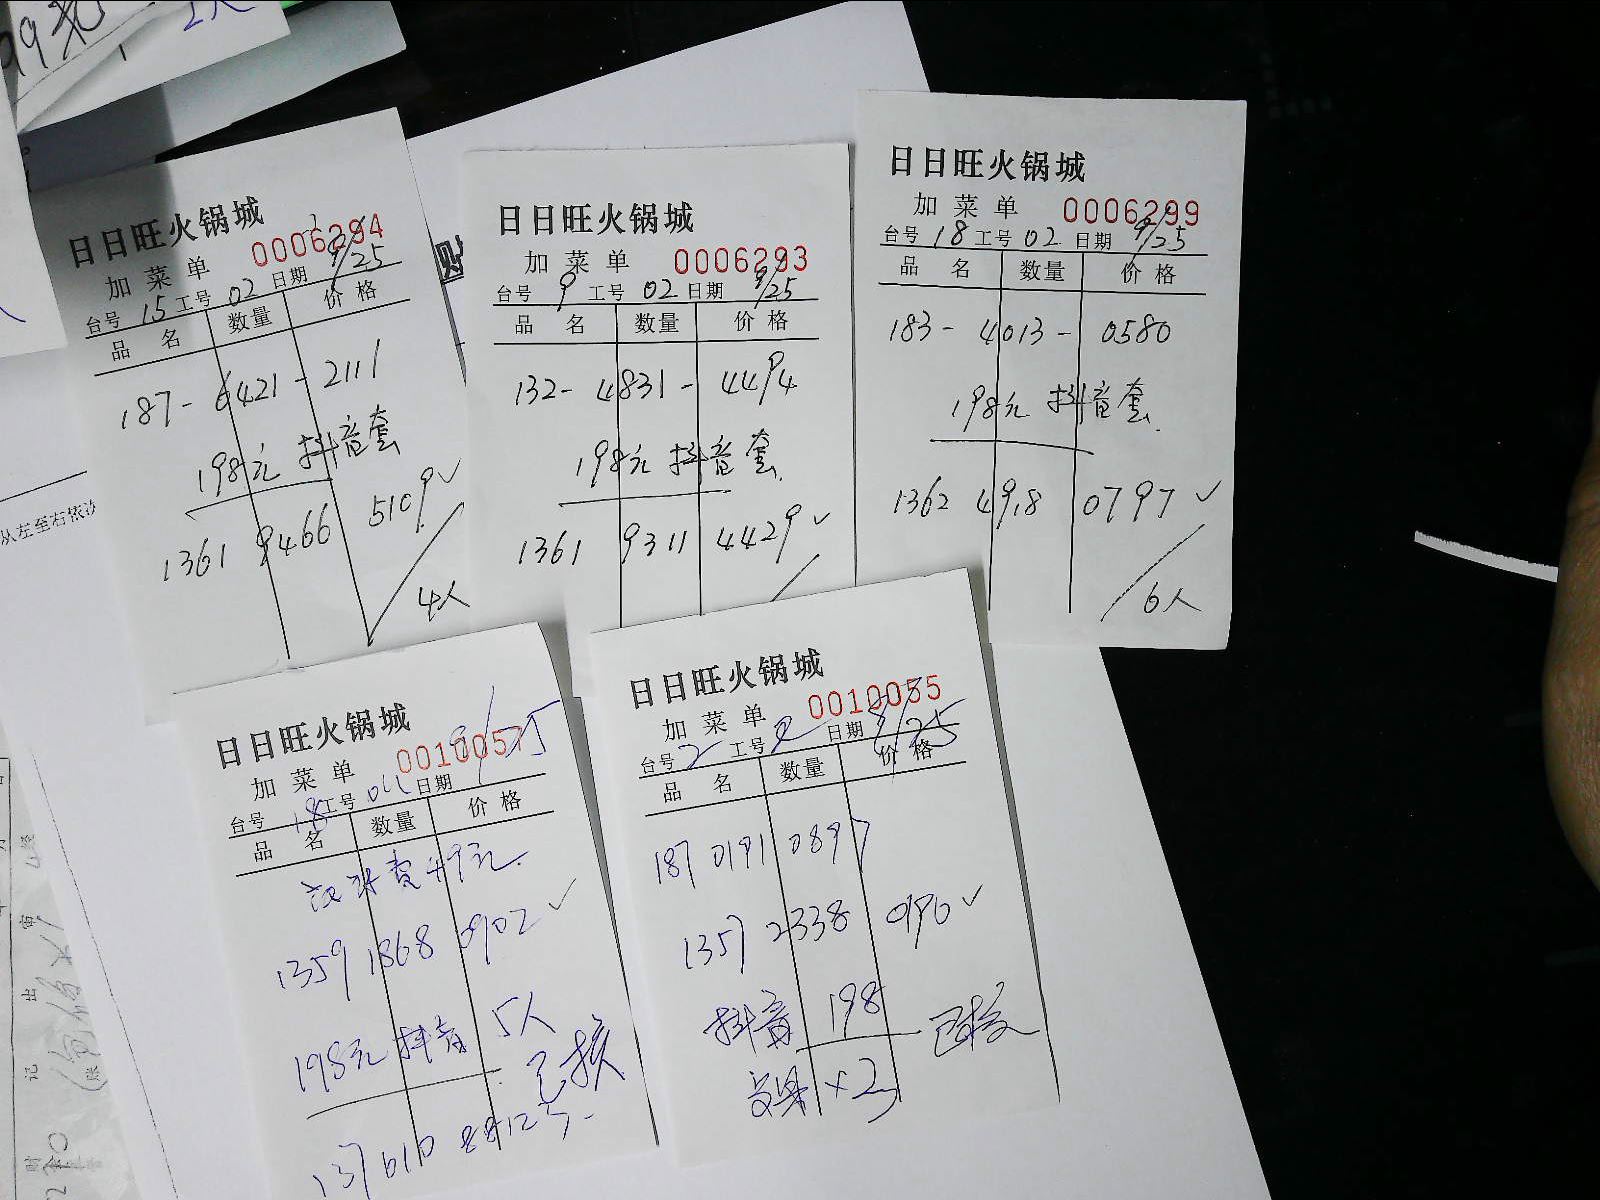 日日旺火锅城
加菜单 0006294
台号 15 工号 02 日期 9/25
品名 数量 价格
187-6421-2111
198元 抖音套
1361 9466 5109 ✓
4人
日日旺火锅城
加菜单 0006293
台号 9 工号 02 日期 9/25
品名 数量 价格
132-4831-4494
198元 抖音套
1361 9311 4429 ✓
日日旺火锅城
加菜单 0006299
台号 18 工号 02 日期 9/25
品名 数量 价格
183-4013-0580
198元 抖音套
1362 4918 0797 ✓
6人
日日旺火锅城
加菜单 0010057
台号 18 工号 日期 9/25
品名 数量 价格
费49元
1359 1868 0902 ✓
198元 抖音 5人
已核
日日旺火锅城
加菜单 0010055
台号 2 工号 2 日期 9/25
品名 数量 价格
187 0191 0897
1357 2338 0190 ✓
抖音 198 已核
×2
从左至右依次
99元